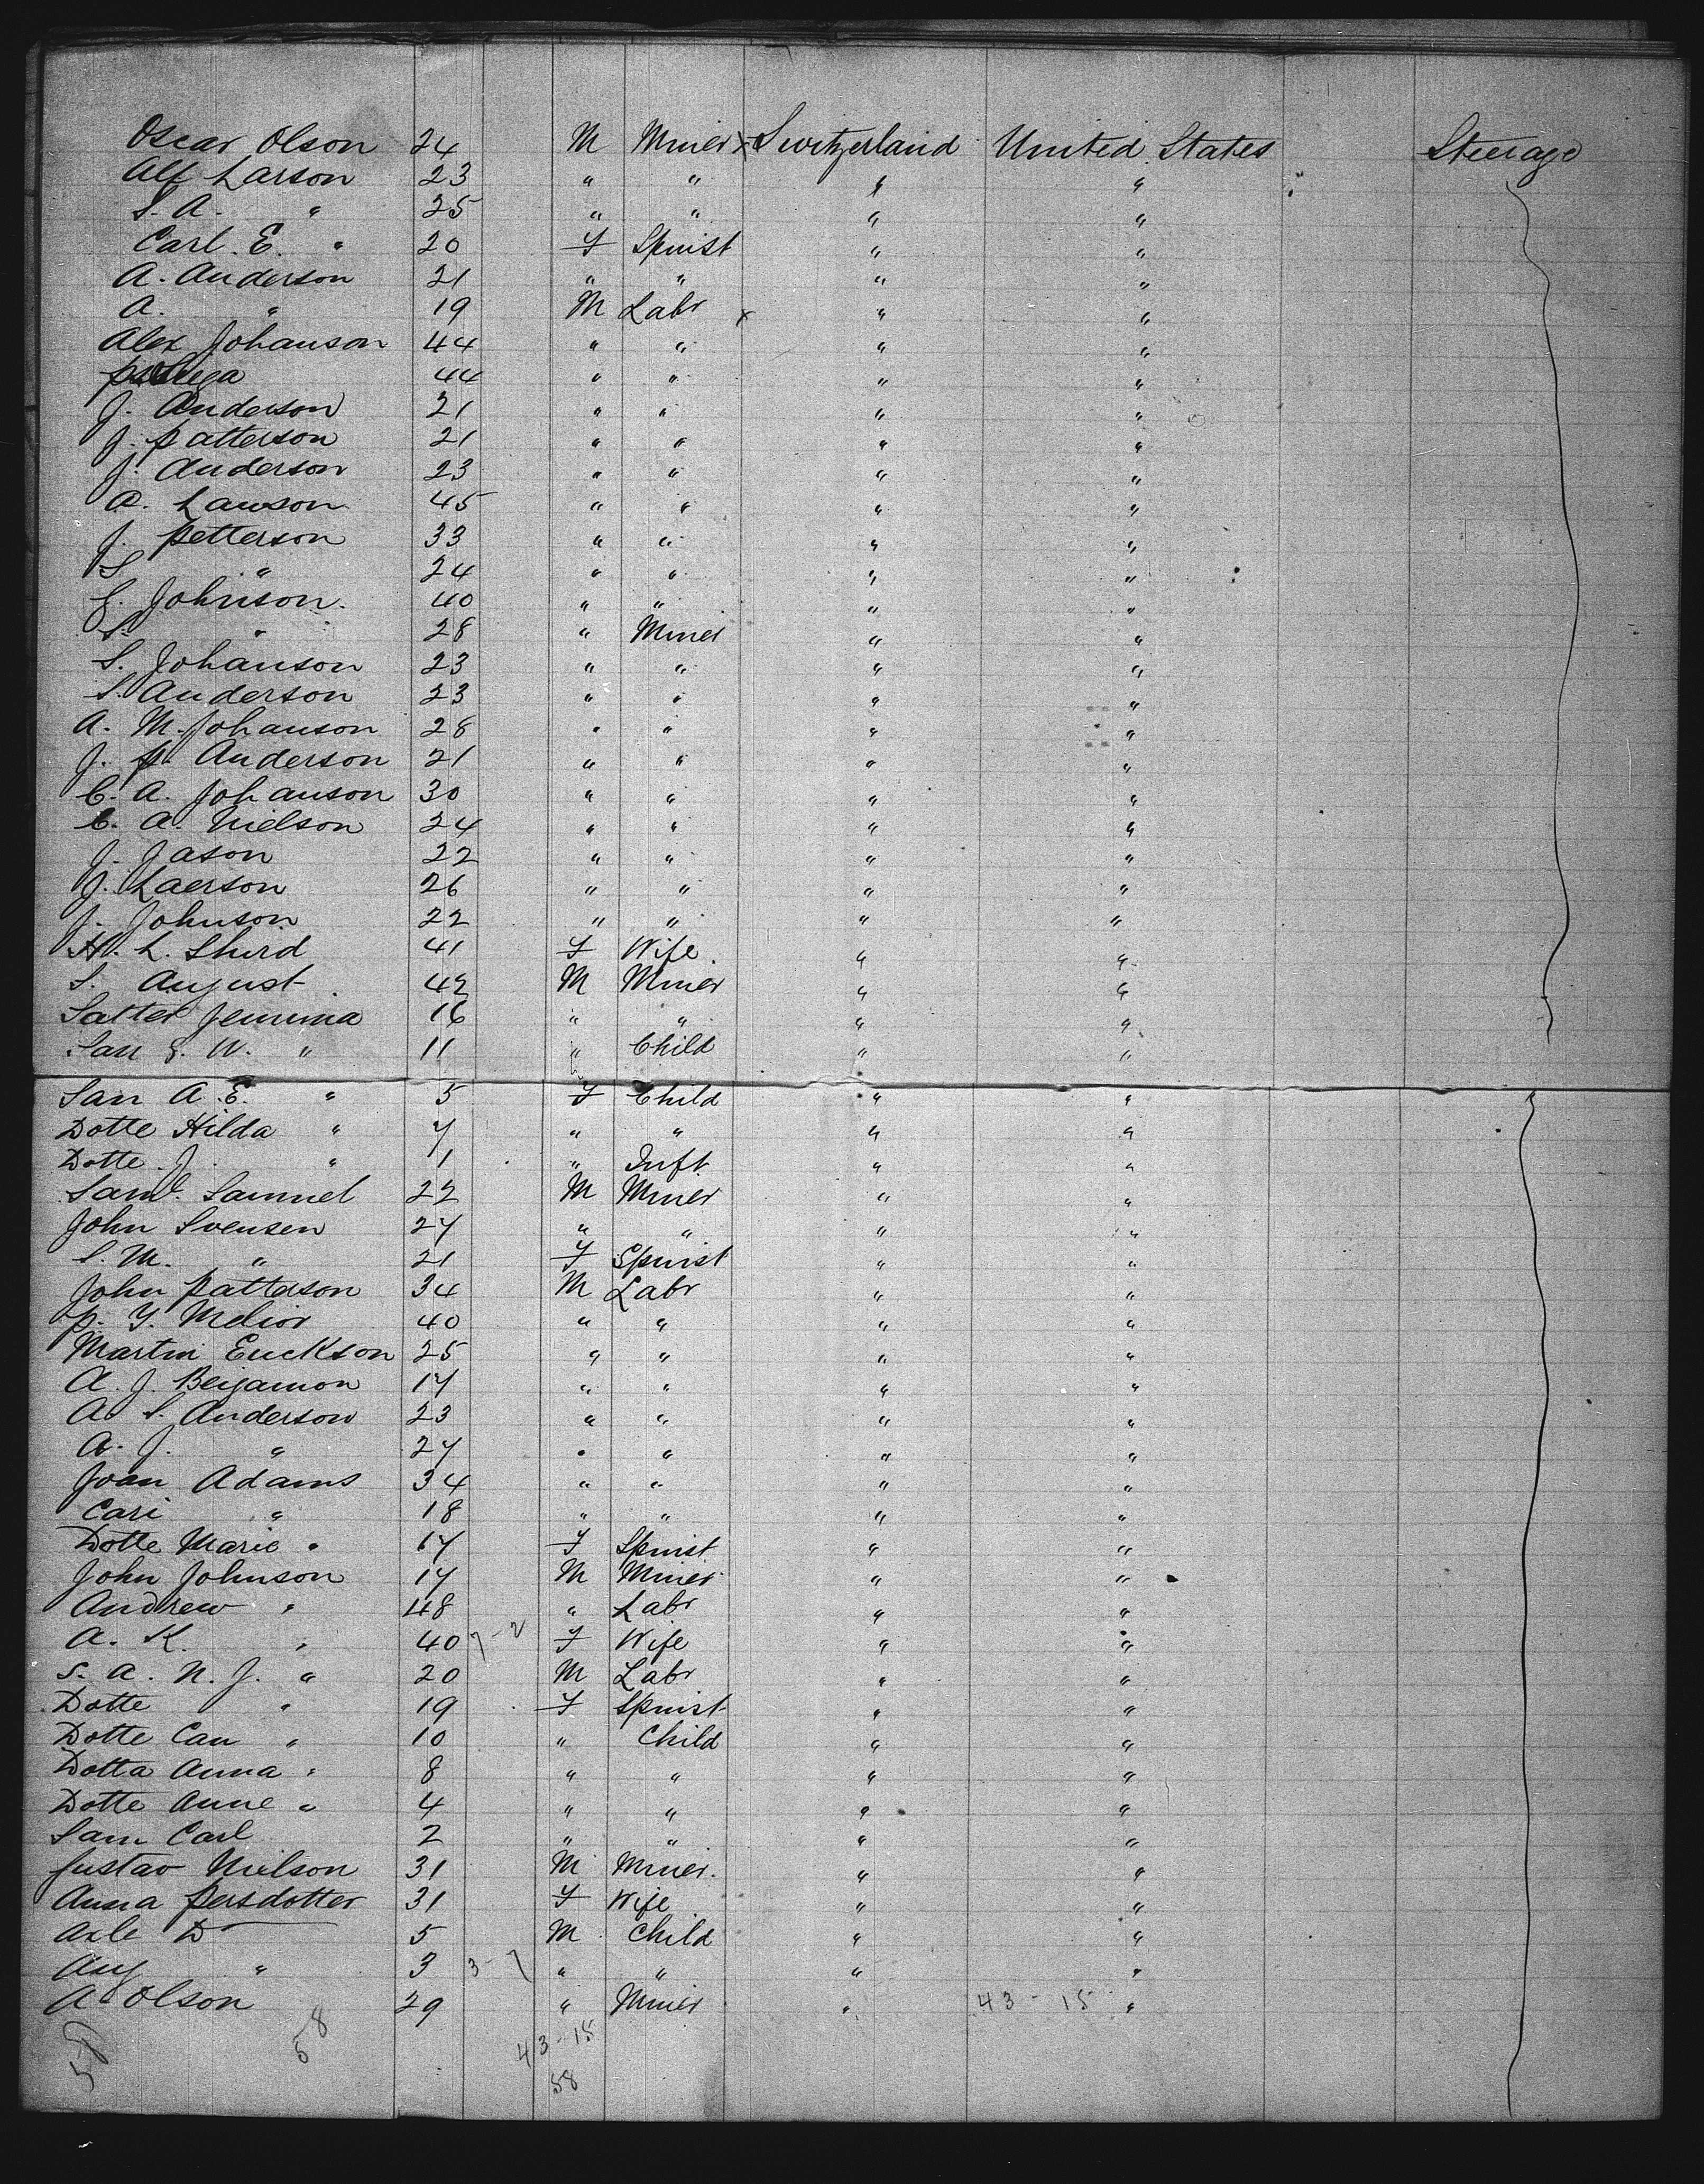 Oscar Olson 24 M Miner x Switzerland United States Steerage
Alf Larson 23 " " " "
S. A. " 25 " " " "
Carl. E. " 20 F Spinst " "
A. Anderson 21 " " " "
A. " 19 M Labr x " "
Alex Johanson 44 " " " "
44 " " " "
J. Anderson 21 " " " "
J. Patterson 21 " " " "
J. Anderson 23 " " " "
A. Lawson 45 " " " "
J. Petterson 33 " " " "
S " 24 " " " "
G. Johnson. 40 " " " "
S. " 28 " Miner " "
S. Johanson 23 " " " "
S. Anderson 23 " " " "
A. M. Johanson 28 " " " "
J. P. Anderson 21 " " " "
C. A. Johanson 30 " " " "
C. A. Nielson 24 " " " "
J. Jason 22 " " " "
J. Laerson 26 " " " "
J. Johnson 22 " " " "
H. L. Shurd 41 F Wife " "
S. August 42 M Miner " "
Satter Jemima 16 " " " "
San G. W. " 11 " Child " "
San A. E. " 5 F Child " "
Dotte Hilda " 7 " " " "
Dotte J. " 1 " Inft " "
Saml. Samuel 22 M Miner " "
John Svensen 27 " " " "
S. M. " 21 F Spinst " "
John Patterson 34 M Labr " "
P. Y. Melior 40 " " " "
Martin Erickson 25 " " " "
A. J. Benjamon 17 " " " "
A. S. Anderson 23 " " " "
A. J. " 27 " " " "
Joan Adams 34 " " " "
Cari " 18 " " " "
Dotte Marie " 17 F Spinst " "
John Johnson 17 M Miner " "
Andrew " 48 " Labr " "
A. K. " 40 7-2 F Wife " "
S. A. N. J. " 20 M Labr " "
Dotte " 19 F Spinst " "
Dotte Can " 10 " Child " "
Dotta Anna " 8 " " " "
Dotte Anne " 4 " " " "
Sam Carl 2 " " " "
Gustav Nielson 31 M Miner. " "
Anna Persdotter 31 F Wife " "
Axle D 5 M Child " "
Aug " 3 3-7 " " " "
A Olson 29 " Miner " 43-15 "
58 58 43-15
58